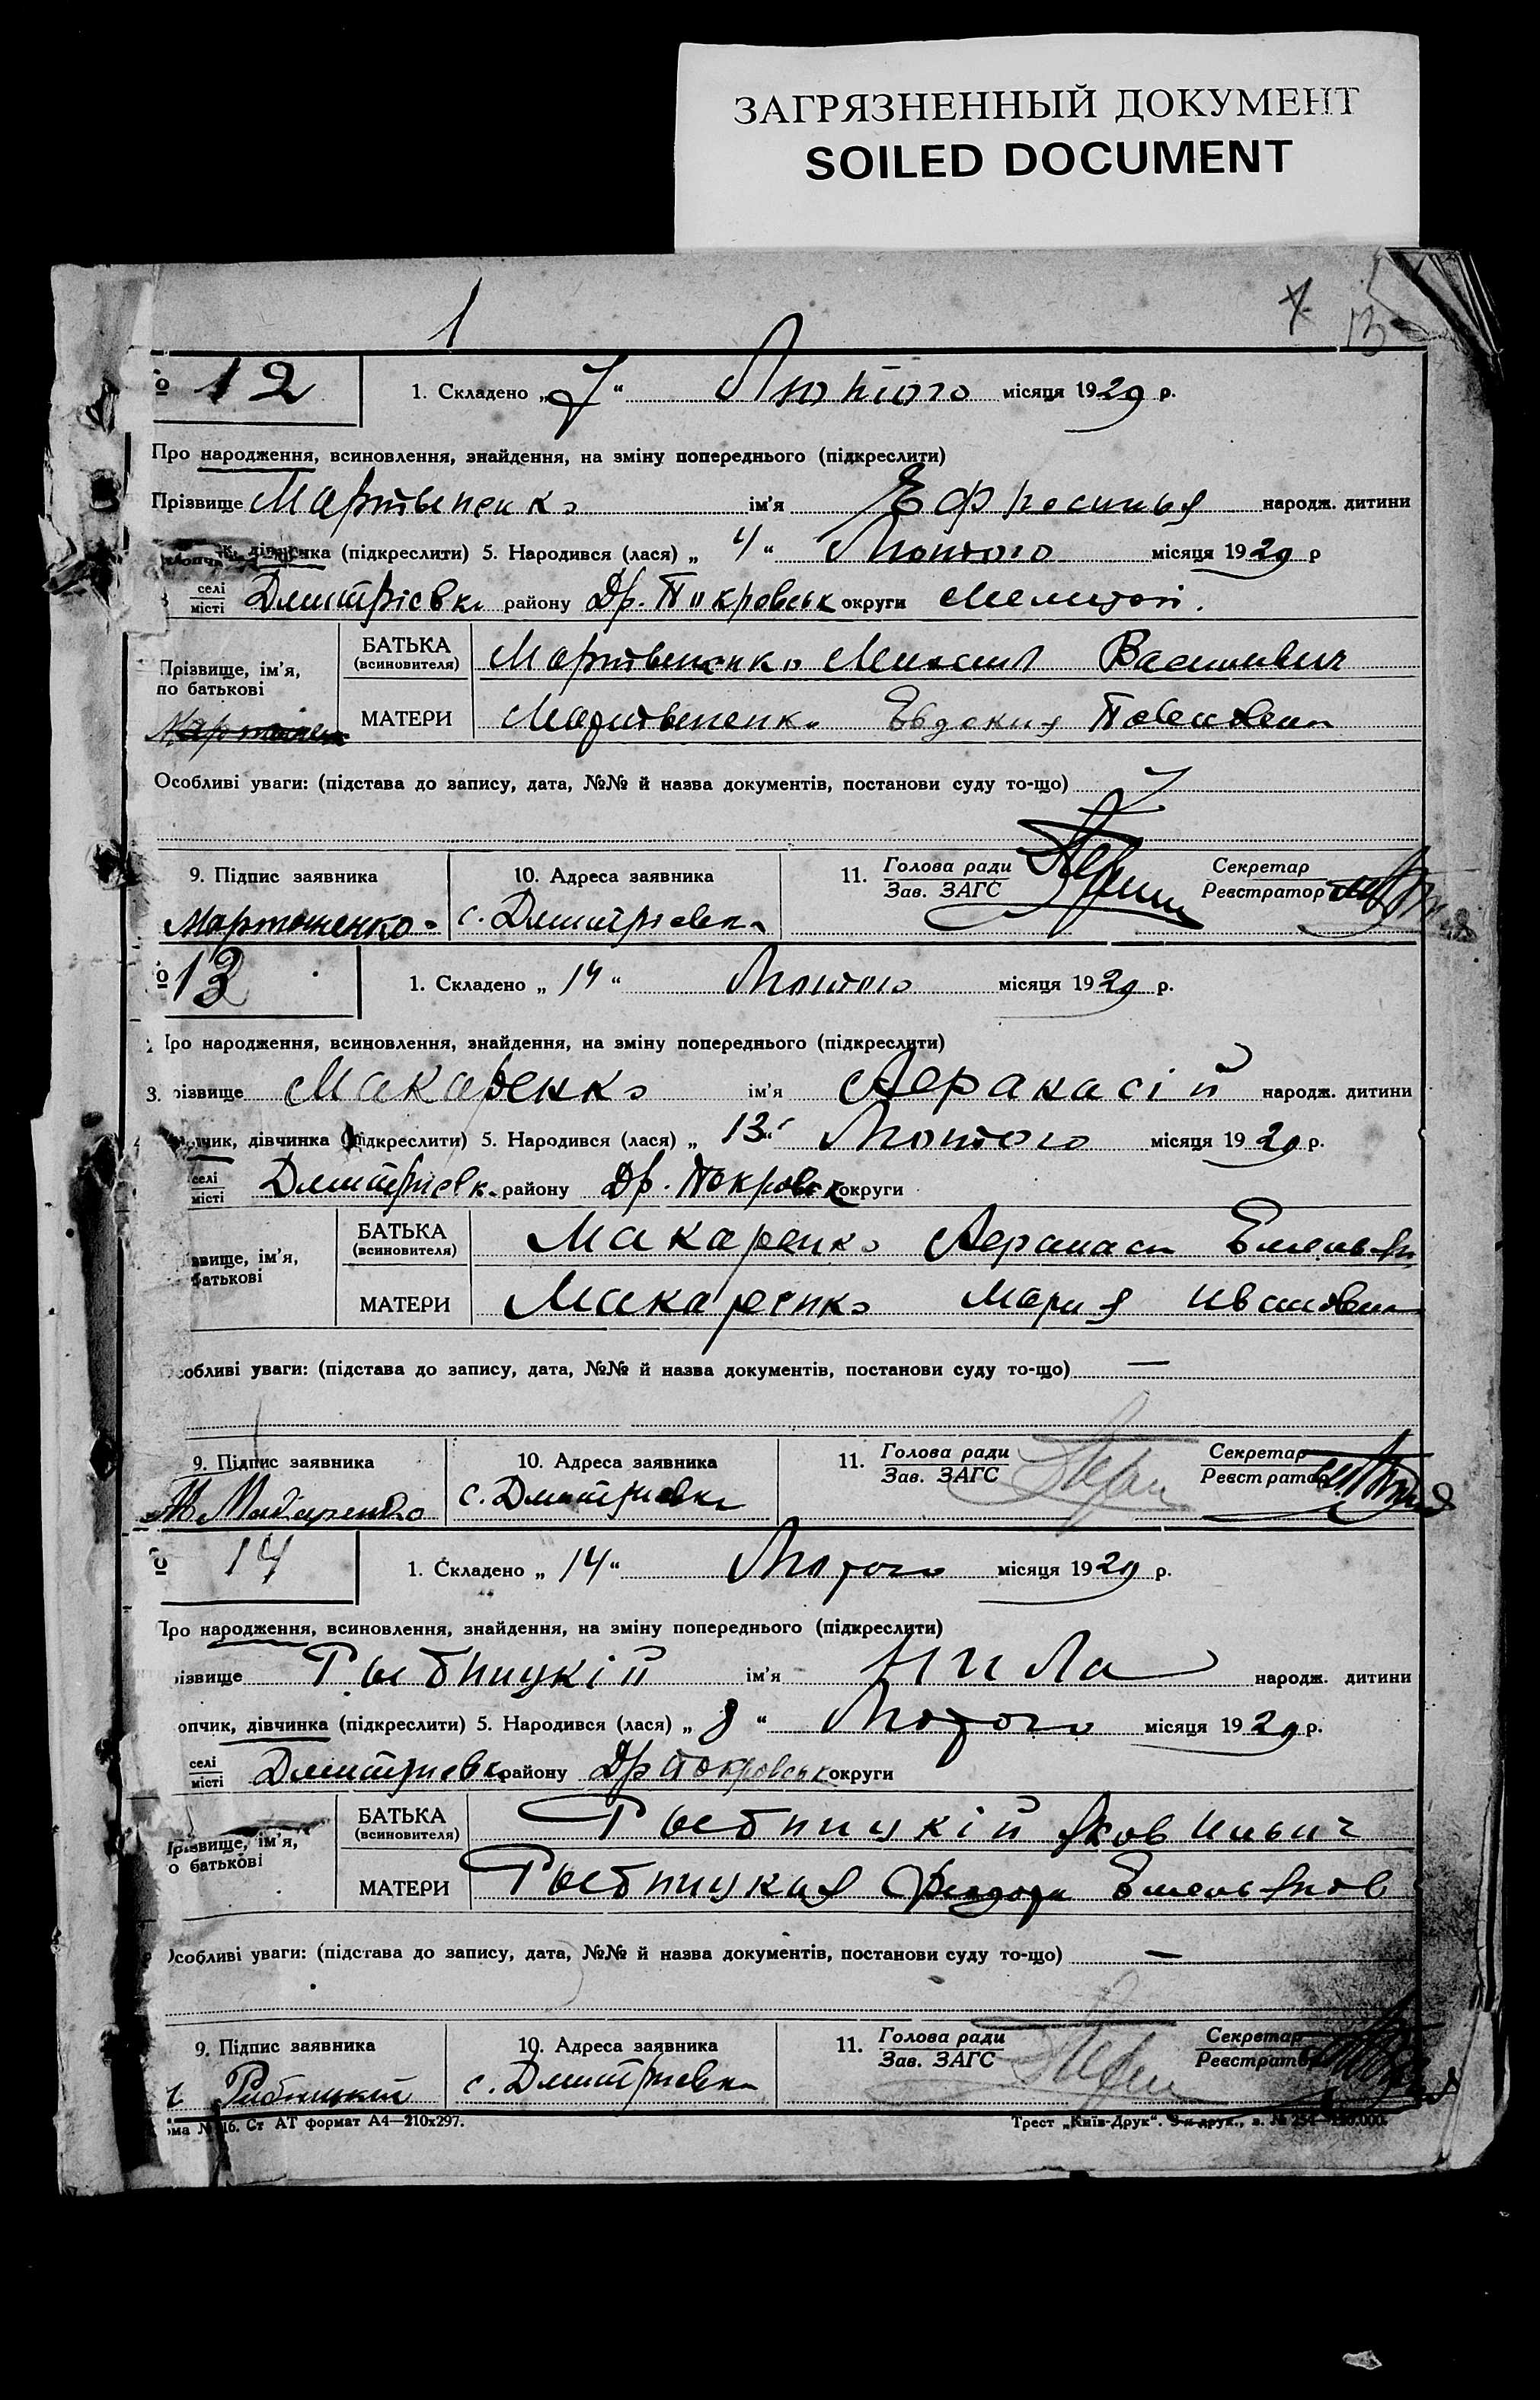 ЗАГРЯЗНЕННЫЙ ДОКУМЕНТ
SOILED DOCUMENT
1
№ 12 1. Складено „7“ Лютого місяця 1929 р.
Про народження, всиновлення, знайдення, на зміну попереднього (підкреслити)
Прізвище Мартвененко ім’я Ефросинья народж. дитини
дівчинка (підкреслити) 5. Народився (лася) „4“ Лютого місяця 1929 р
селі
місті Дмитрієвка району Др. Покровськ округи Мелитоп.
Прізвище, ім’я, по батькові
БАТЬКА (всиновителя) Мартвененко Михаил Васильевич
МАТЕРИ Мартвененко Евдокия
Особливі уваги: (підстава до запису, дата, №№ й назва документів, постанови суду то-що)
9. Підпис заявника 10. Адреса заявника 11. Голова ради Зав. ЗАГС Секретар Реєстратор
с. Дмитрієвка
№ 13 1. Складено „14“ Лютого місяця 1929 р.
Про народження, всиновлення, знайдення, на зміну попереднього (підкреслити)
3. різвище Макаренко ім’я Афанасій народж. дитини
чик, дівчинка (підкреслити) 5. Народився (лася) „13“ Лютого місяця 1929 р.
селі
місті Дмитрієвка району Др. Покровск округи
звище, ім’я, батькові
БАТЬКА (всиновителя) Макаренко Афанаси Емельян
МАТЕРИ Макаренко Мария Ивановна
собливі уваги: (підстава до запису, дата, №№ й назва документів, постанови суду то-що) —
9. Підпис заявника 10. Адреса заявника 11. Голова ради Зав. ЗАГС Секретар Реєстратор
Макаренко с. Дмитриевка
14 1. Складено „14“ Лютого місяця 1929 р.
Про народження, всиновлення, знайдення, на зміну попереднього (підкреслити)
різвище Рыбницкій ім’я Нила народж. дитини
опчик, дівчинка (підкреслити) 5. Народився (лася) „8“ Лютого місяця 1929 р.
селі
місті Дмитриевка району Др Покровськ округи
Прізвище, ім’я, о батькові
БАТЬКА (всиновителя) Рыбницкій Яков Ильич
МАТЕРИ Рыбницкая Феодора Емельянов
Особливі уваги: (підстава до запису, дата, №№ й назва документів, постанови суду то-що) —
9. Підпис заявника 10. Адреса заявника 11. Голова ради Зав. ЗАГС Секретар Реєстратор
Рибницкий с. Дмитриевка
16. Ст АТ формат А4—210х297. Трест „Київ-Друк“.